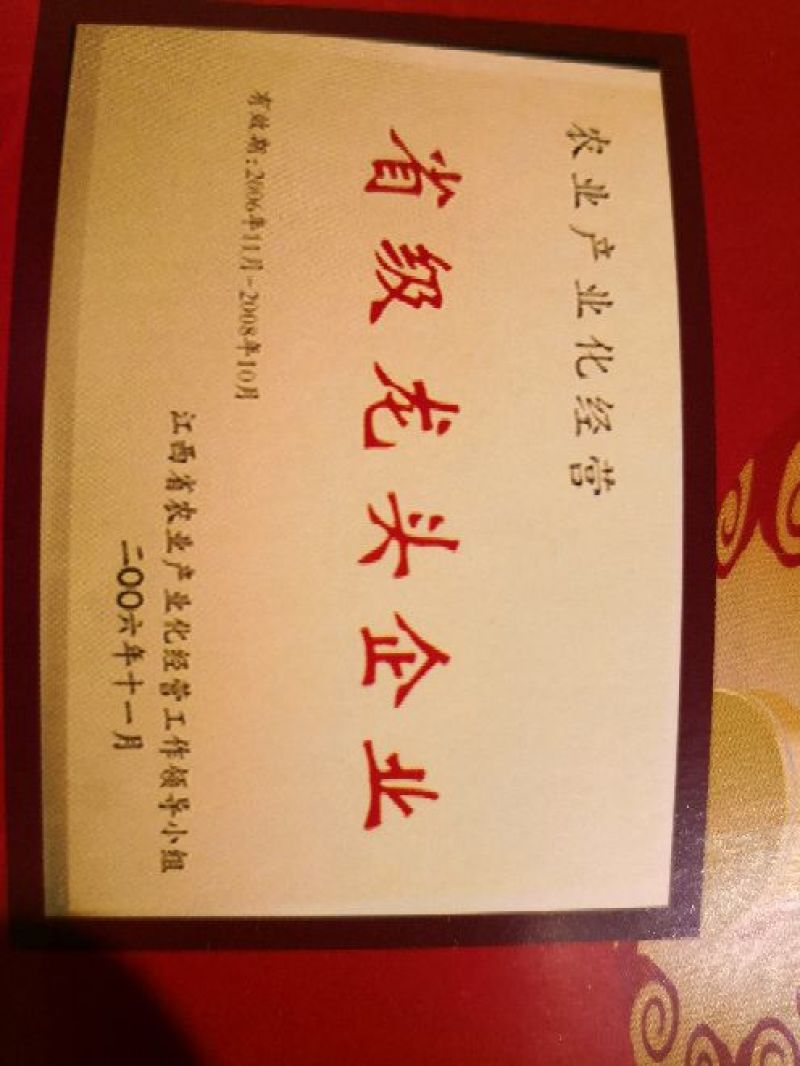 农业产业化经营
省级龙头企业
有效期：2006年11月-2008年10月
江西省农业产业化经营工作领导小组
二〇〇六年十一月